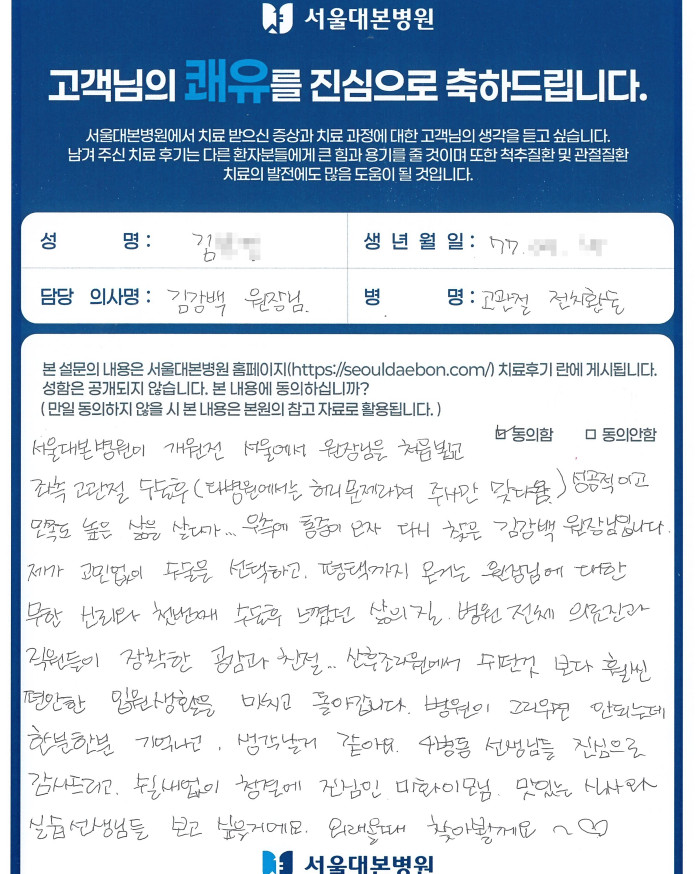 서울대본병원
고객님의 쾌유를 진심으로 축하드립니다.
서울대본병원에서 치료 받으신 증상과 치료 과정에 대한 고객님의 생각을 듣고 싶습니다.
남겨 주신 치료 후기는 다른 환자분들에게 큰 힘과 용기를 줄 것이며 또한 척추질환 및 관절질환
치료의 발전에도 많음 도움이 될 것입니다.
성 명 : 김
생 년 월 일 : 77.
담당 의사명 : 김강백 원장님.
병 명 : 고관절 전치환술
본 설문의 내용은 서울대본병원 홈페이지(https://seouldaebon.com/) 치료후기 란에 게시됩니다.
성함은 공개되지 않습니다. 본 내용에 동의하십니까?
( 만일 동의하지 않을 시 본 내용은 본원의 참고 자료로 활용됩니다. )
동의함 동의안함
서울대본병원이 개원전 서울에서 원장님을 처음뵙고
좌측 고관절 수술후 (타병원에서는 허리문제라며 주사만 맞다옴.) 성공적이고
만족도 높은 삶을 살다가... 우측에 통증이 오자 다시 찾은 김강백 원장님입니다.
제가 고민없이 수술을 선택하고, 평택까지 온거는 원장님에 대한
무한 신뢰와 첫번째 수술후 느꼈던 삶의 질. 병원 전체 의료진과
직원들이 장착한 공감과 친절... 산후조리원에서 쉬던것 보다 훨씬
편안한 입원생활을 마치고 돌아갑니다. 병원이 그리우면 안되는데
한분한분 기억나고, 생각날거 같아요. 4병동 선생님들 진심으로
감사드리고, 쉴새없이 청결에 진심인 미화이모님, 맛있는 식사와
실습선생님들 보고 싶을거에요. 외래올때 찾아뵐게요 ~♡
서울대본병원